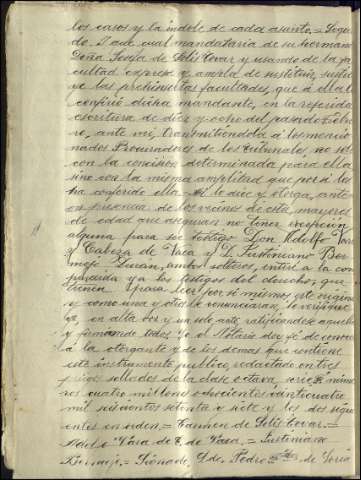 los casos y la índole de cada asunto.= Segun-
do. Y que cual mandataria de su hermana
Doña Josefa de Solis Tovar y usando de la fa-
cultad expresa y amplia de sustituir, sustitu-
ye las prehinsertas facultades, que á ella le
confirió dicha mandante, en la referida
escritura de diez y ocho del pasado Febre-
ro, ante mi, trasmitiendola á los mencio-
nados Procuradores de los Tribunales, no solo
con la concision determinada para ella
sino con la misma amplitud que por si les
ha conferido ella. Asi lo dice y otorga, ante
en presencia de los vecinos de esta, mayores
de edad que aseguran no tener excepcion
alguna para ser testigos Don Adolfo Vara
y Cabeza de Vaca y D. Justiniano Ber-
mejo Duran, ambos solteros, enteré a la com-
parecida y a los testigos del derecho, que
tienen para leer por si mismos este original
y como una y otros le renunciaran, lo verifiqué
yo, en alta voz y un solo acto, ratificandose aquella
y firmando todos. Yo el Notario doy fé de conocer
a la otorgante y de los demas que contiene
este instrumento publico, redactado en tres
pliegos sellados de la clase octava, serie núme-
ros cuatro millones ochocientos cuatro
mil seiscientos setenta y siete y los dos sigui-
entes en orden.= Carmen de Solis Tovar.=
Adolfo Vara de C. de Vaca.= Justiniano
Bermejo.= Signado, L. do Pedro de Soria